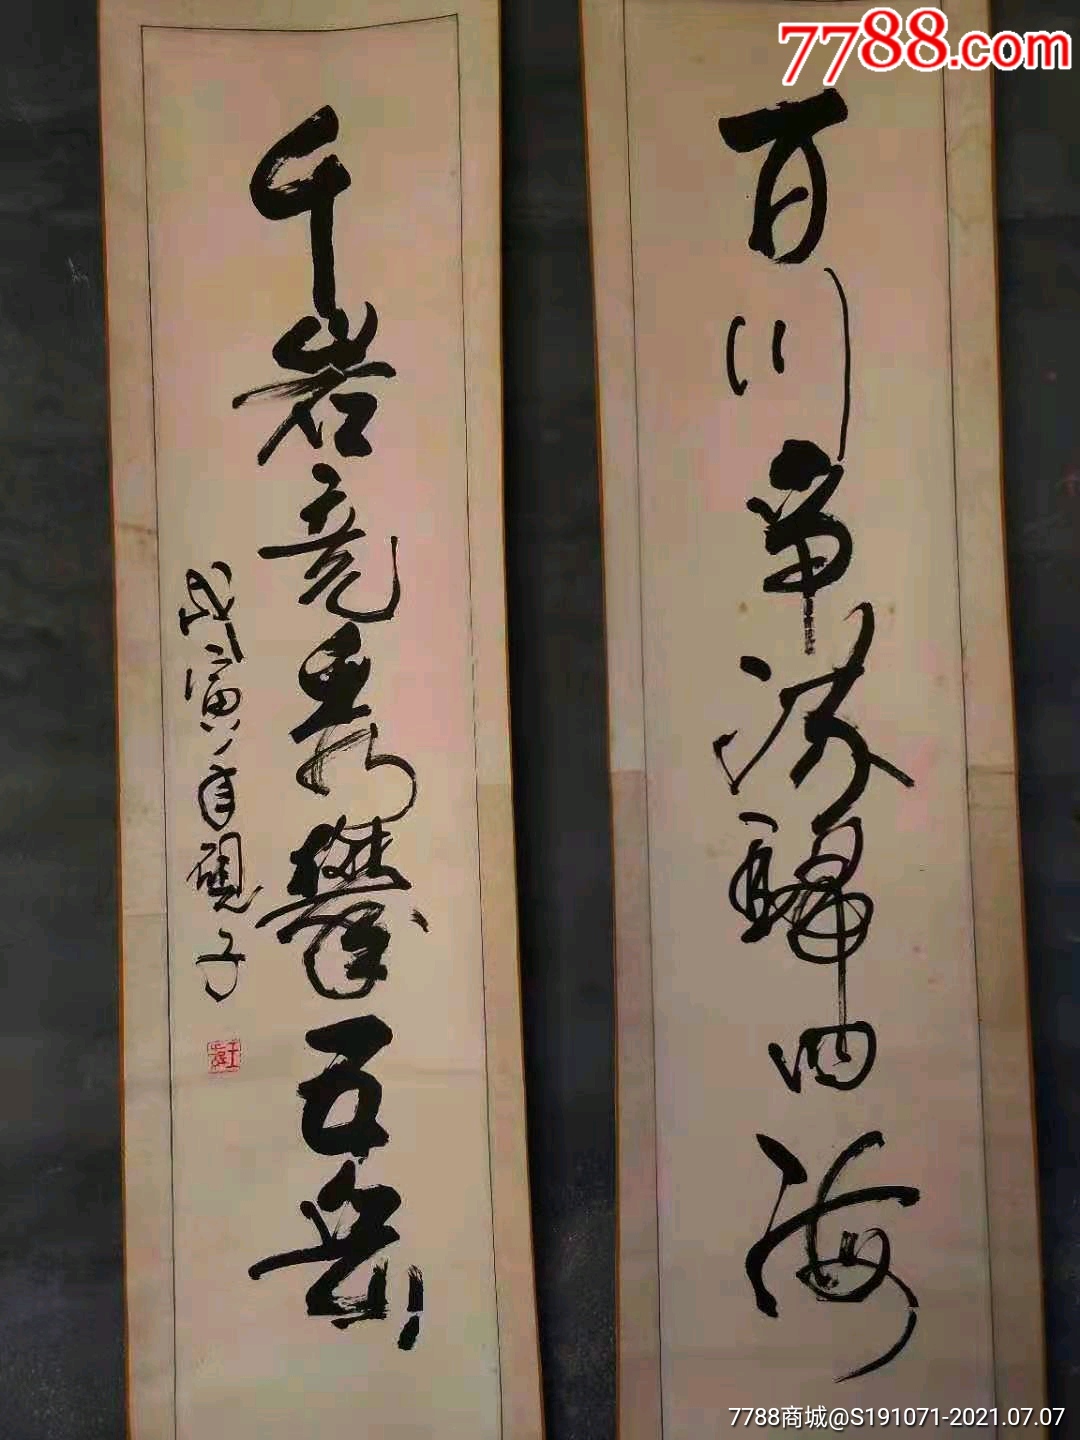 7788.com
百川争流歸四海
千岩竞秀攀五岳
戊寅年硯子
7788商城@S191071-2021.07.07